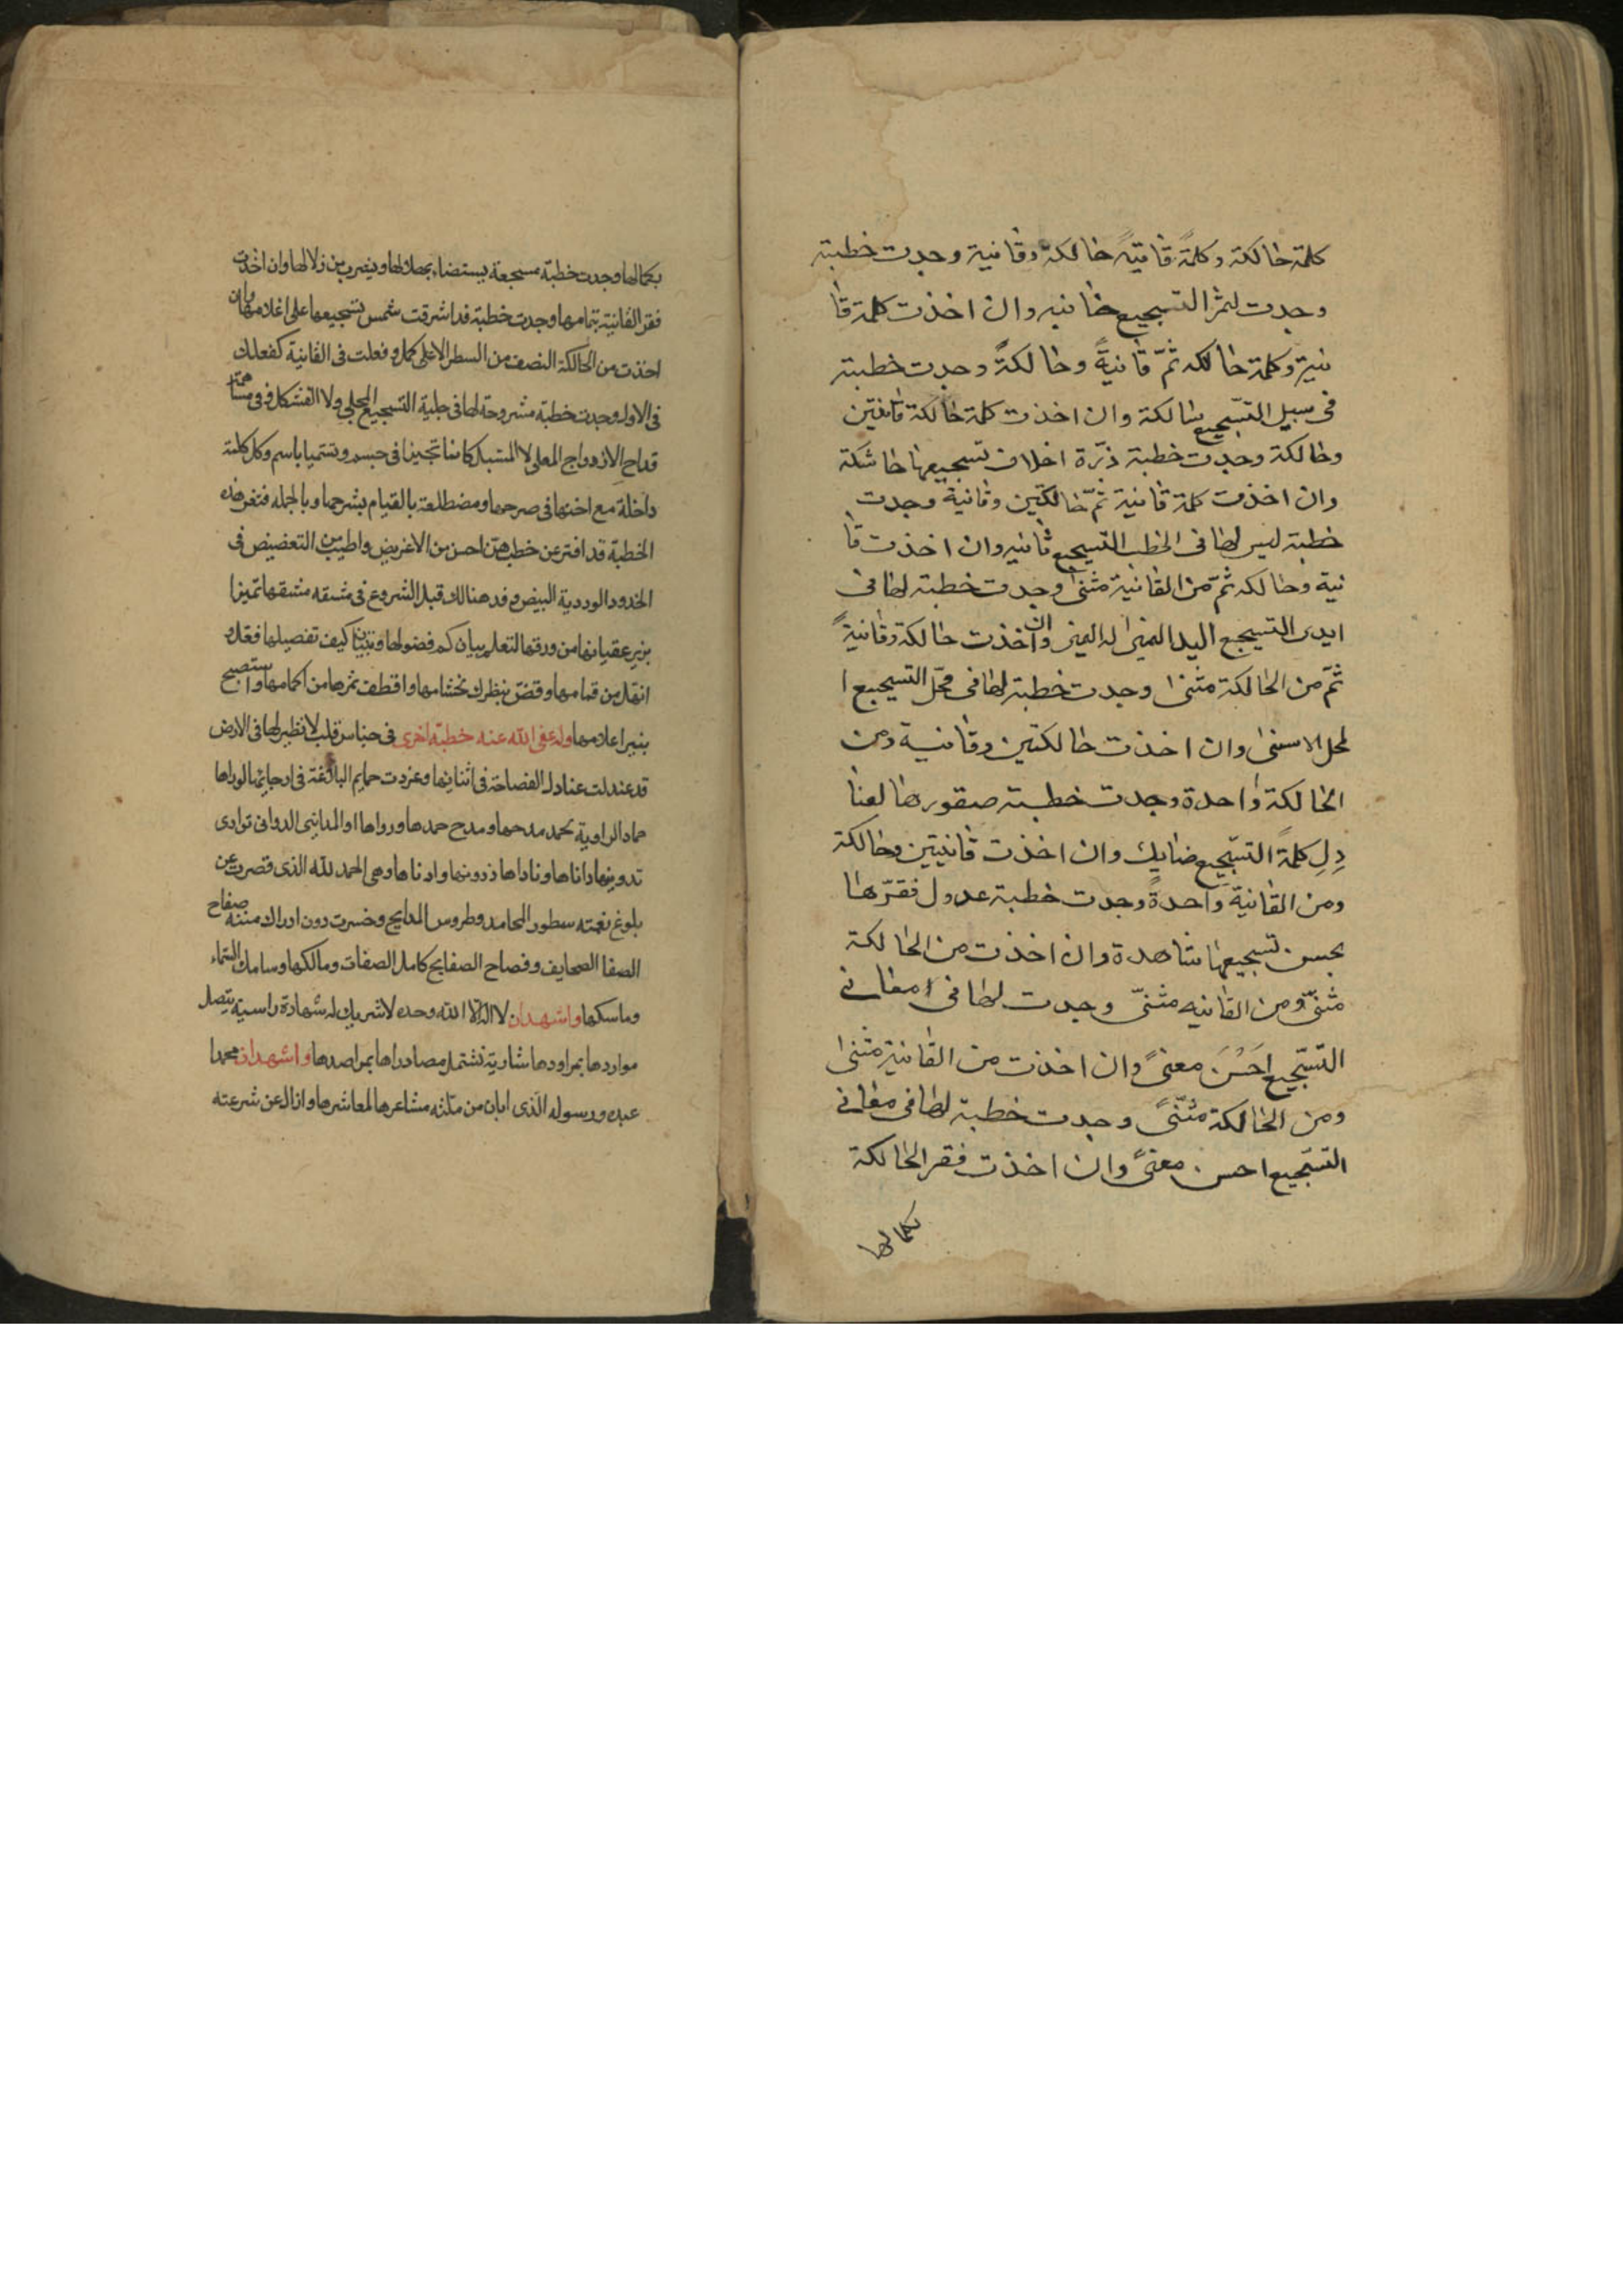 كلمة حالكة وكلمةً قانيةً حالكة وقانية وجدت خطبة
وجدت لثمر التسجيع جانيه وان اخذت كلمة قا
نية وكلمة حالكه ثمّ قانيةً وحالكةً وجدت خطبة
فى سبيل التسّجيع سالكة وان اخذت كلمة حالكة قانيتين
وحالكة وجدت خطبة اخلاف تسجيعها حاشكة
وان اخذت كلمة قانية ثمّ حالكتين وقانية وجدت
خطبة ليس لها فى الخطب التسجيع ثانيه وان اخذت قا
نية وحالكه ثمّ من القانية مثنى وجدت خطبة لها فى
ايدى التسجيع اليد اليمنى وان اخذت حالكة وقانيةً
ثمّ من الحالكة مثنى وجدت خطبة لها فى محلّ التسجيع ا
لمحل الاسنى وان اخذت حالكتين وقانية ومن
الحالكة واحدة وجدت خطبة صقورها لعنا
دِلِ كلمة التسّجيع وان اخذت قانيتين وحالكة
ومن القانية واحدةً وجدت خطبة عدول فقرّها
بحسن تسجيعها شاهدة وان اخذت من الحالكة
مثنىّ ومن القانيه مثنىّ وجدت لها فى مغانى
التسّجيع احَسْنَ معنىً وان اخذت من القانية مثنى
ومن الحالكة مثنّىً وجدت خطبة لها فى مغانى
التسّجيع احسن معنىً وان اخذت فقر الحالكة
بكمالها
بكمالها وجدت خطبة مسجعة يستضاء ويضرب من زلالها وان اخذت
فقر القانية بتمامها وجدت خطبة قد اشرقت شمس تسجيعها على اعلامها وان
اخذت من الحالكة النصف من السطر الاعلى كمل وفعلت فى القانية كفعلك
فى الاول وجدت خطبة مشروحة لها فى حلبة التسجيع المجلى ولا
قداح الازدواج المعلى لا المسبل ويتسميا باسم وكل كلمة
داخلة مع اختها فى صرحها ومضطلعة بالقيام بشرحها وبالجمله فثغر هذه
الخطبة قد افتر عن خطب هن احسن من الاغريض واطيب من التعضيض فى
الخدود الوردية البيض قبل الشروع فى مشقه
عقيانها من ورقها لتعلم بيان كم فصولها وتبيان كيف تفصيلها فقل
انقل من وفض بنظرك ختامها واقطف ثمرها من اكمامها واستصبح
بنير اعلامها وله عفى الله عنه خطبة اخرى فى جناس قلب لا نظير لها فى الارض
قد عندلت عنادل الفصاحة فى اثنائها وغردت حمايم البلاغة فى ارجائها
حماد الراوية بحمد مدحها ومدح حمدها ورواها
تدوينها وهى الحمد لله الذى قصرت عن
بلوغ نعمته سطور المحامد وطروس المدايح وخسرت دون ادراك مننه صفاح
الصفا الصحايف وفصاح الصفايح كامل الصفات ومالكها وسامك السماء
وماسكها واشهد ان لا اله الا الله وحده لا شريك له شهادة راسية يتصل
مواردها بمراودها تشتمل مصادراها بمراصدها واشهد ان محمدا
عبده ورسوله الذى ابان من ملته مشاعرها لمعاشرها وازال عن شرعته